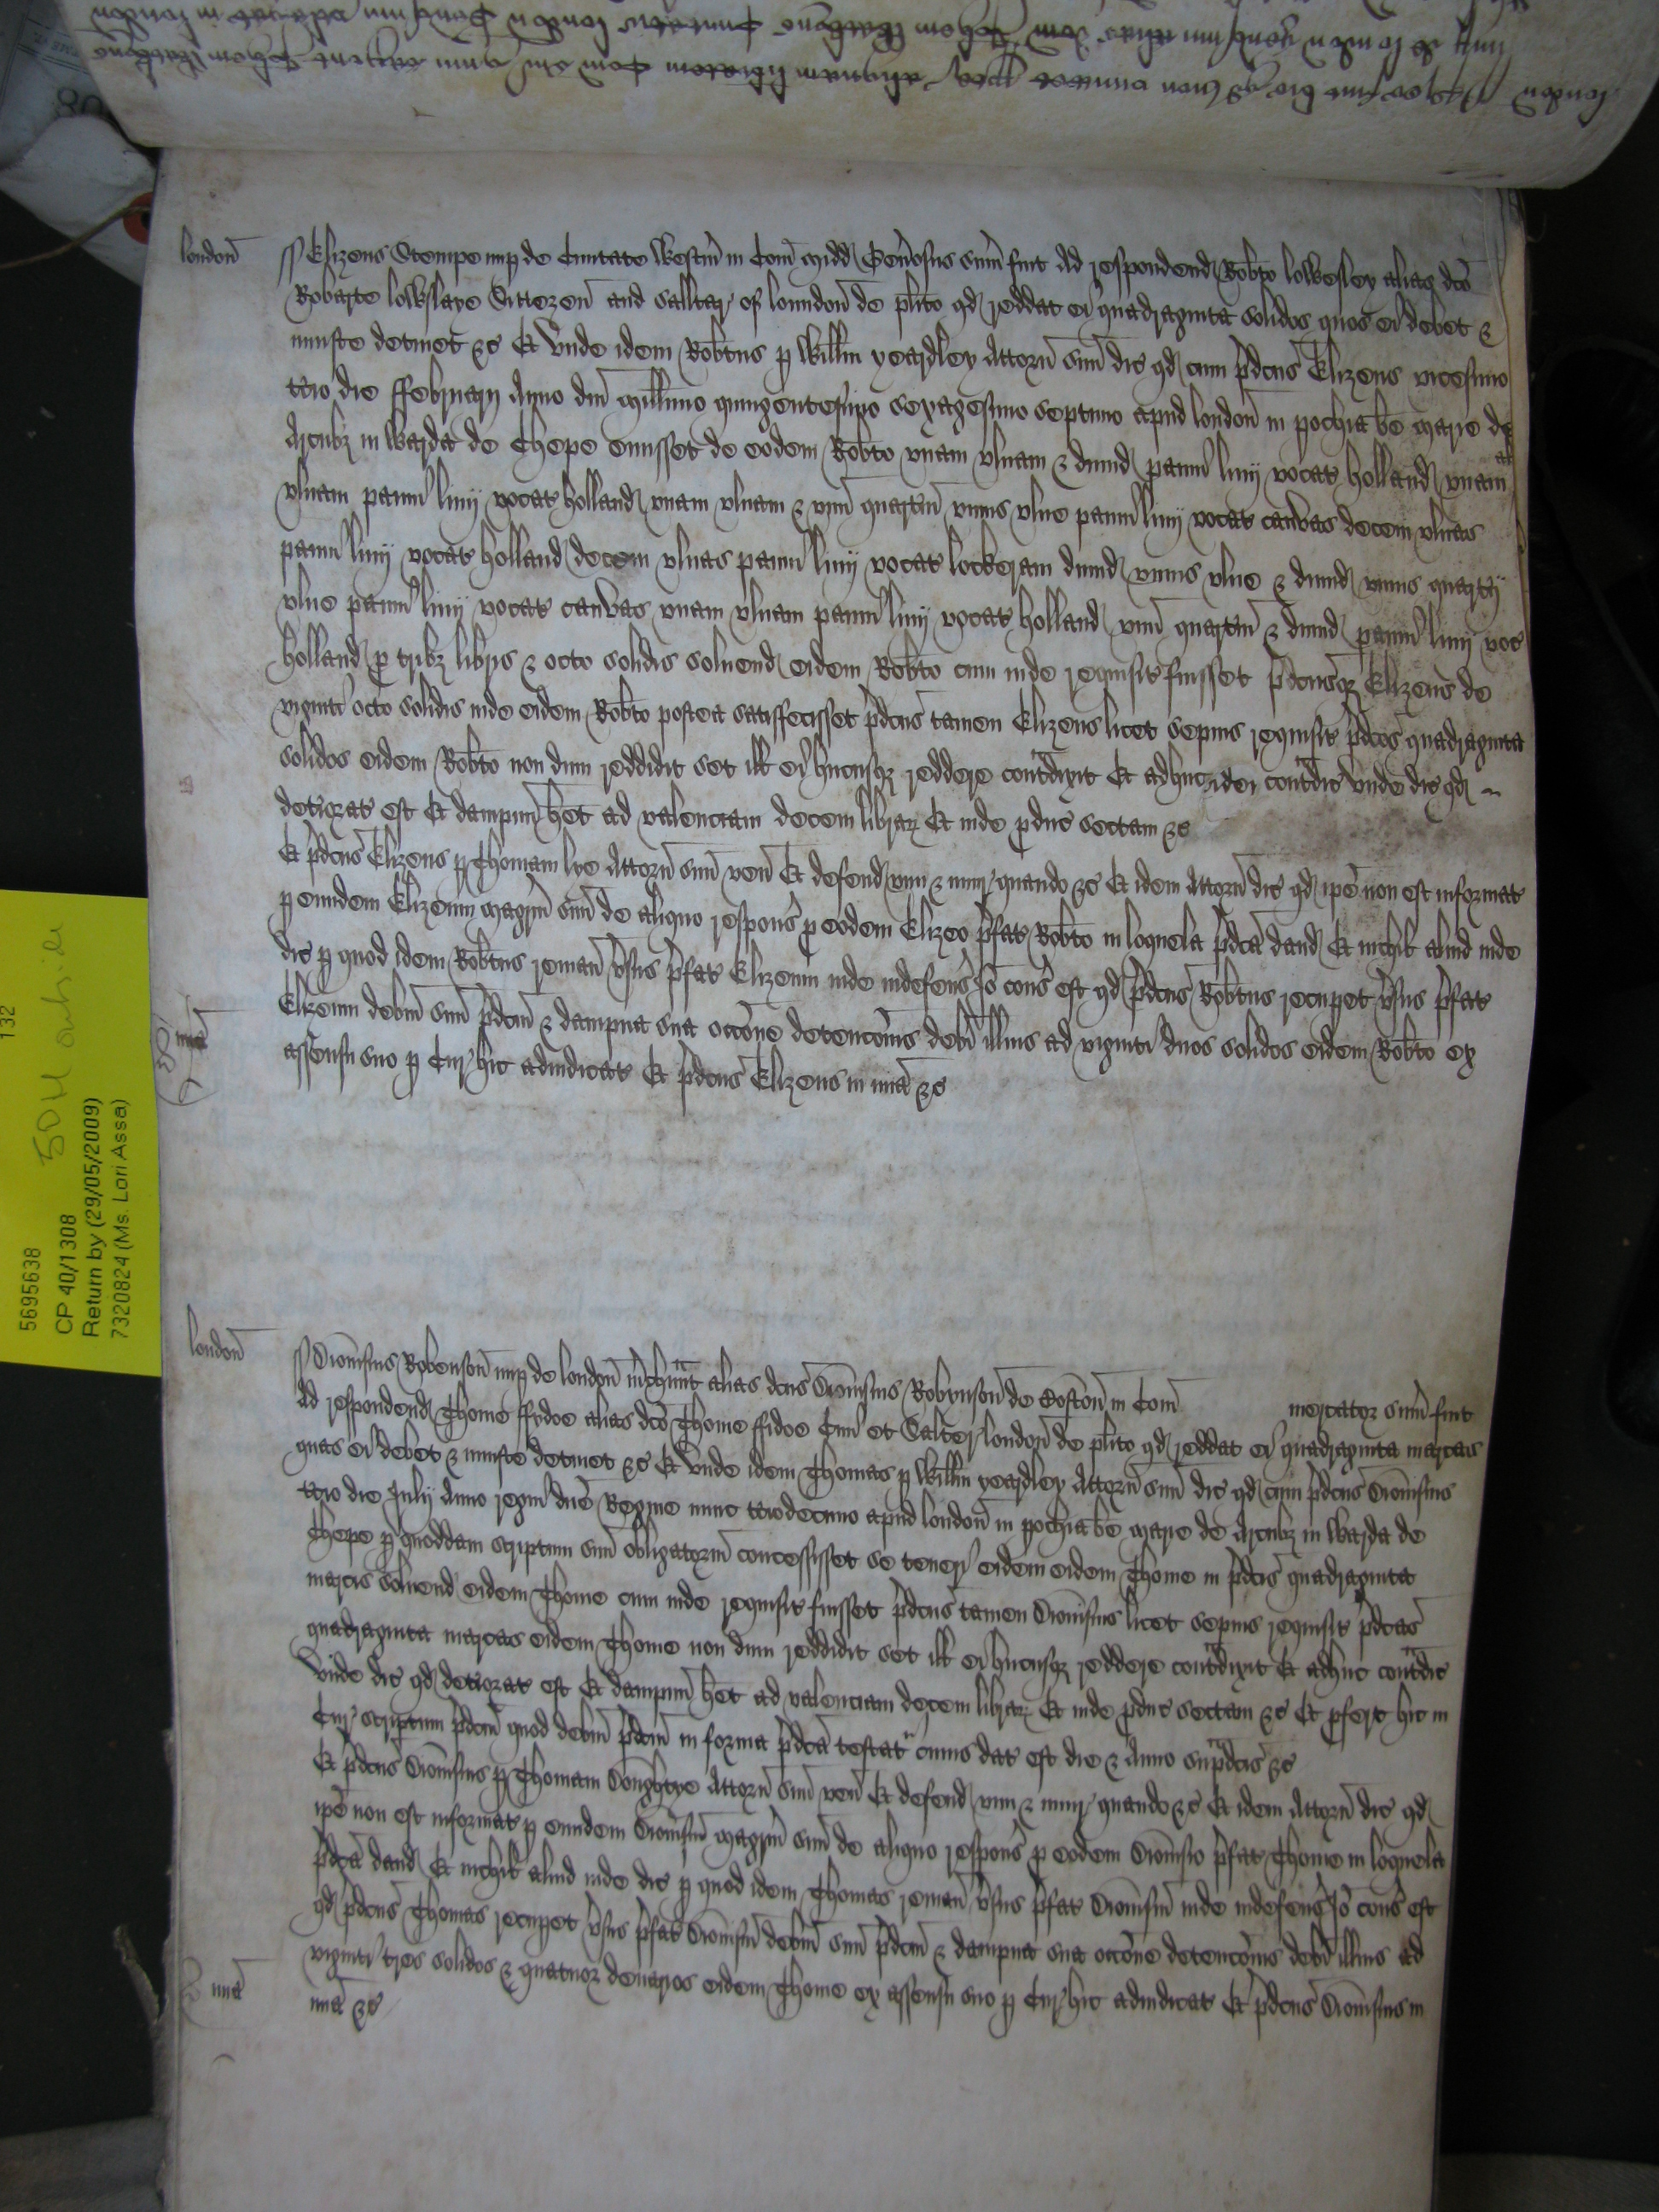 londoñ
Elizeus Stempe nup de Ciuitate Westm̄ in Com̄ Midd Geñosus sum̄ fuit ad respondend Rob̄to lowesley alias dc̄o
Robarte lowslaye Sittezen and salltar of lonndoñ de plīto qd reddat ei quadraginta solidos quos ei debet &
iniuste detinet &c Et vnde idem Rob̄tus p Will̄m yeardley Attorñ suū dic̄ qd cum p̄dcūs Elizeus vicesimo
t̄cio die ffebruarij Anno dnī Mill̄imo quingentesimo sexagesimo septimo apud londoñ in pochia bē Marie de
Arcubȝ in Warda de Chepe emisset de eodem Rob̄to vnam vlnam & dimid pann̄ linij vocat holland vnam
vlnam pann̄ linij vocat holland vnam vlnam & vnū quart̄iū vnius vlne pann̄ linij vocat canvas decem vlnas
pann̄ linij vocat holland decem vlnas pann̄ linij vocat lockeram dimid vnius vlne & dimid vnius quart̄ij
vlne pann̄ linij vocat canvas vnam vlnam pann̄ linij vocat holland vnū quart̄iū & dimid pann̄ linij voc̄
holland p tribȝ libris & octo solidis soluend eidem Rob̄to cum inde requisit̄ fuisset p̄dcūsqȝ Elizeus de
viginti octo solidis inde eidem Rob̄to postea satisfecisset p̄dcūs tamen Elizeus licet sepius requisit̄ p̄dcōs quadraginta
solidos eidem Rob̄to non dum reddidit set ill̄ ei hucusqȝ reddere cont̄dixit Et adhuc ei cont̄dic̄ vnde dic̄ qd
det̄iorat̄ est Et dampnū h̄et ad valenciam decem librarȝ Et inde pduc̄ sectam &c
Et p̄dcūs Elizeus p Thomam lye Attorñ suū veñ Et defend vim & iniur̄ quando &c Et idem Attorñ dic̄ qd ipē non est informat̄
p eundem Elizeum Magrm̄ suū de aliquo respons̄ p eodem Elizeo p̄fat̄ Rob̄to in loquela p̄dcā dand Et nichil aliud inde
dic̄ p quod idem Rob̄tus remañ v̄sus p̄fat̄ Elizeum inde indefens̄ Iō cons̄ est qd p̄dcūs Rob̄tus recupet v̄sus p̄fat̄
Elizeum debm̄ suū p̄dcm̄ & dampna sua occ̄one detenc̄onis debī illius ad viginti duos solidos eidem Rob̄to ex
mīa
assensu suo p Cur̄ hic adiudicat̄ Et p̄dcūs Elizeus in mīa &c
londoñ
Dionisius Robensoñ nup de londoñ m̄chunt̄ alias dcūs Dionisius Robynsoñ de Bostoñ in Com̄ mercator sum̄ fuit
Ad respondend Thome ffydoe alias dc̄o Thome ffidoe Ciui et Salter londoñ de plīto qd reddat ei quadraginta marcas
quas ei debet & iniuste detinet &c Et vnde idem Thomas p Will̄m yeardley Attorñ suū dic̄ qd cum p̄dcūs Dionisius
t̄cio die Julij Anno regni dnē Regine nunc t̄ciodecimo apud londoñ in pochia bē Marie de Arcubȝ in Warda de
Chepe p quoddam scriptum suū obligatoriū concessisset se teneri eidem eidem Thome in p̄dcīs quadraginta
marcis soluend eidem Thome cum inde requisit̄ fuisset p̄dcūs tamen Dionisius licet sepius requisit̄ p̄dcās
quadraginta marcas eidem Thome non dum reddidit set ill̄ ei hucusqȝ reddere cont̄dixit Et adhuc cont̄dic̄
vnde dic̄ qd det̄iorat̄ est Et dampnū h̄et ad valenciam decem librarȝ Et inde pduc̄ sectam &c Et pfert hic in
Cur̄ scriptum p̄dcm̄ quod debm̄ p̄dcm̄ in forma p̄dcā testat̄ cuius dat̄ est die & Anno sup̄dcīs &c
Et p̄dcūs Dionisius p Thomam Doughtye Attorñ suū veñ Et defend vim & iniur̄ quando &c Et idem Attorñ dic̄ qd
ipē non est informat̄ p eundem Dionisiū Magrm̄ suū de aliquo respons̄ p eodem Dionisio p̄fat̄ Thome in loquela
p̄dcā dand Et nichil aliud inde dic̄ p quod idem Thomas remañ v̄sus p̄fat̄ Dionisiū inde indefens̄ Iō cons̄ est
qd p̄dcūs Thomas recupet v̄sus p̄fat̄ Dionisiū debm̄ suū p̄dcm̄ & dampna sua occ̄one detenc̄onis debī illius ad
viginti tres solidos & quatuor denarios eidem Thome ex assensu suo p Cur̄ hic adiudicat̄ Et p̄dcūs Dionisius in
mīa
mīa &c
132
5695638
CP 40/1308
Return by (29/05/2009)
7320824 (Ms. Lori Assa)